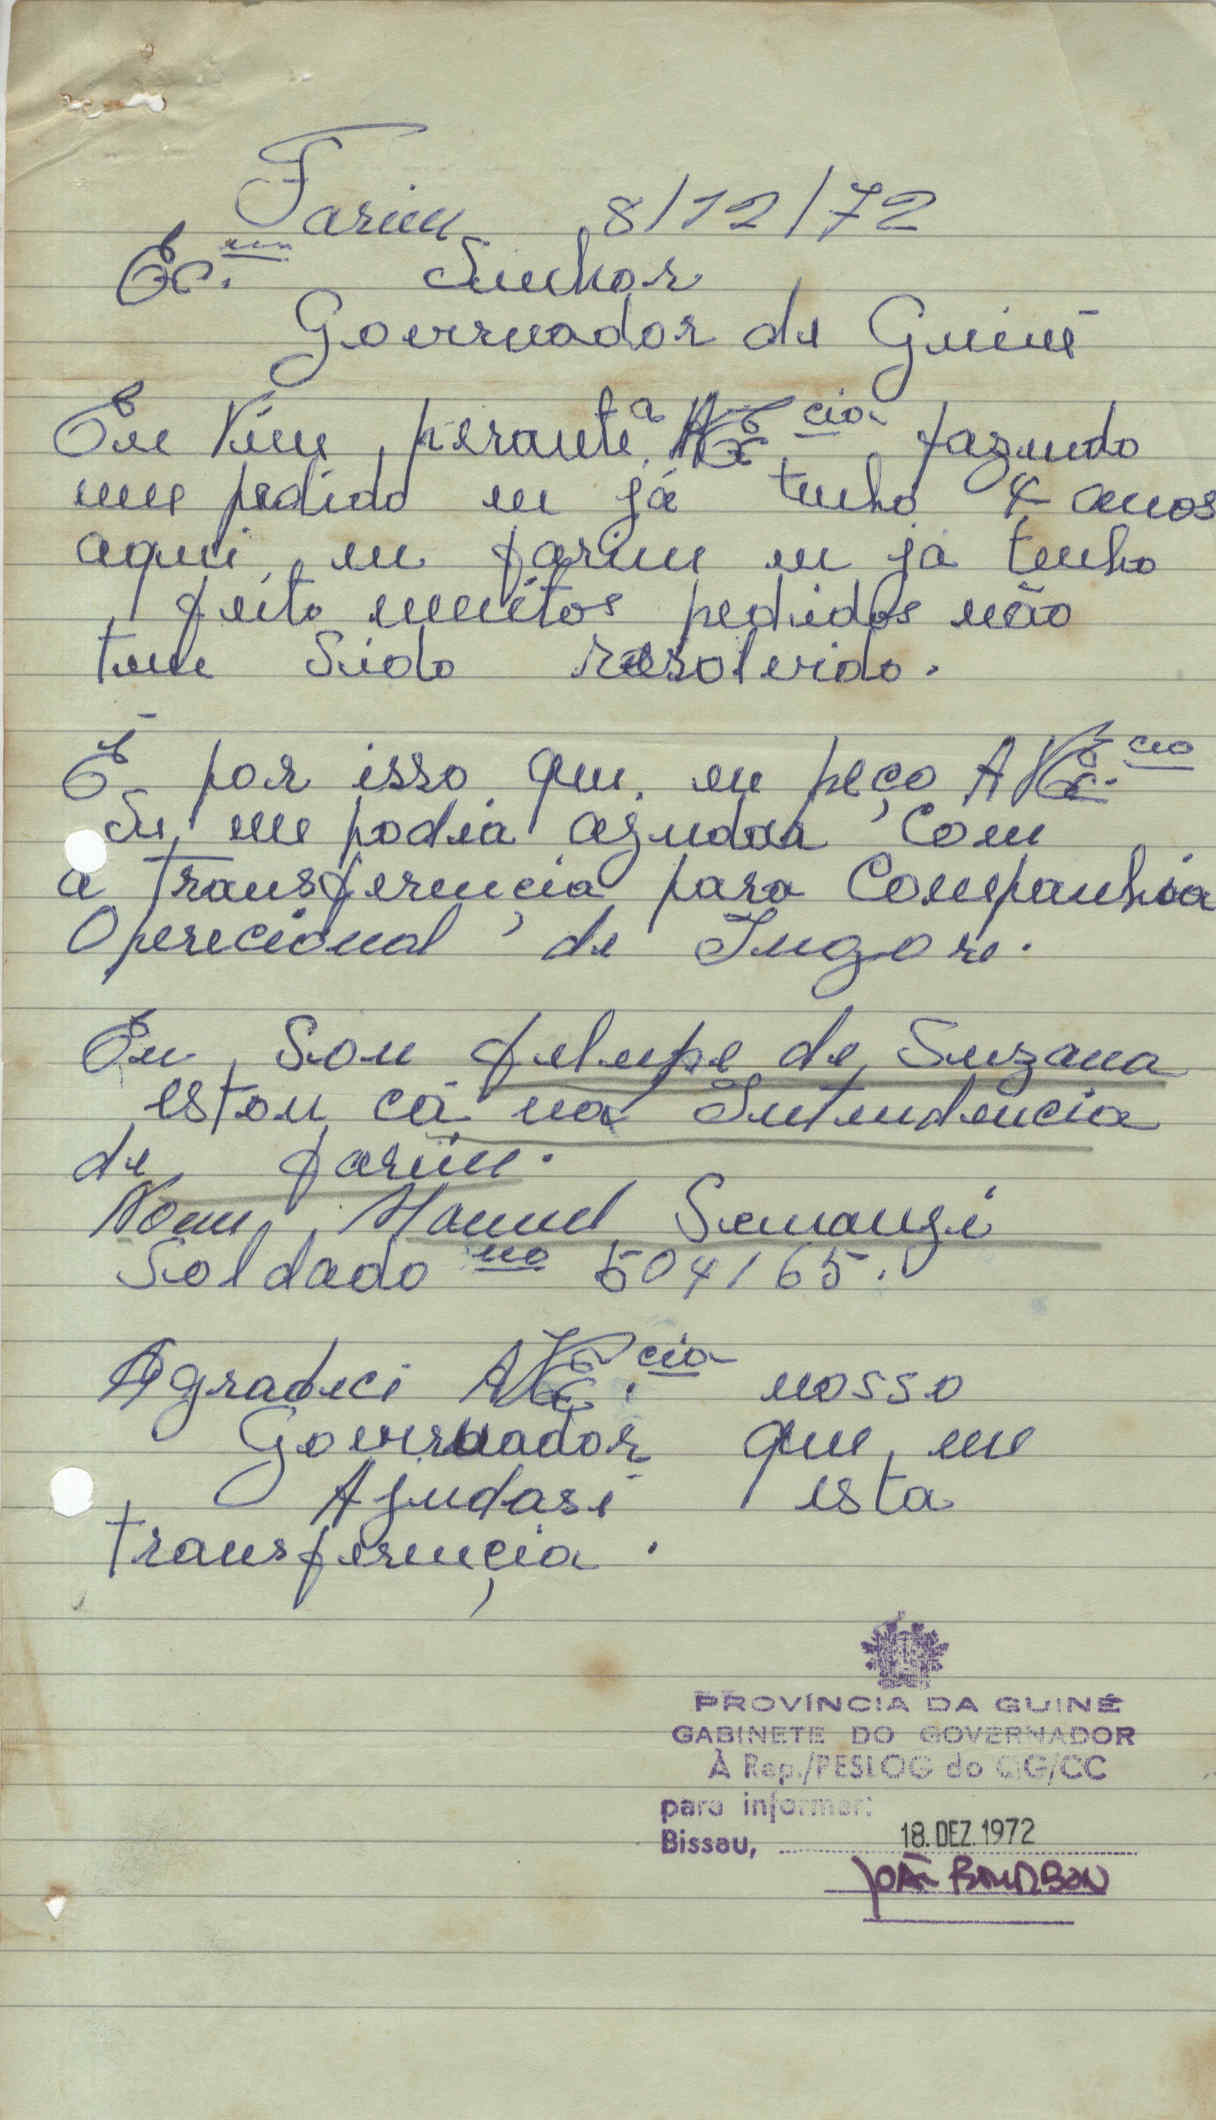 Farim 8/12/72
Ec.mo Senhor
Governador de Guiné
Eu Vim perante a V Ex.cia fazendo
um pedido eu já tenho 4 anos
aqui em farim eu já tenho
feito muitos pedidos não
tem Sido resolvido.
É por isso que eu peço A V Ex.cia
Se me podia ajudar Com
a transferencia para Companhia
Operecional de Ingore.
Eu Sou felupe de Suzana
estou cá na Intendência
de farim.
Nome Manuel Semansi
Soldado no 504/65.
Agradeci A V Ex.cia nosso
Governador que me
Ajudasi esta
transferençia.
PROVÍNCIA DA GUINÉ
GABINETE DO GOVERNADOR
À Rep./PESLOG do QG/CC
para informar:
Bissau, 18. DEZ. 1972